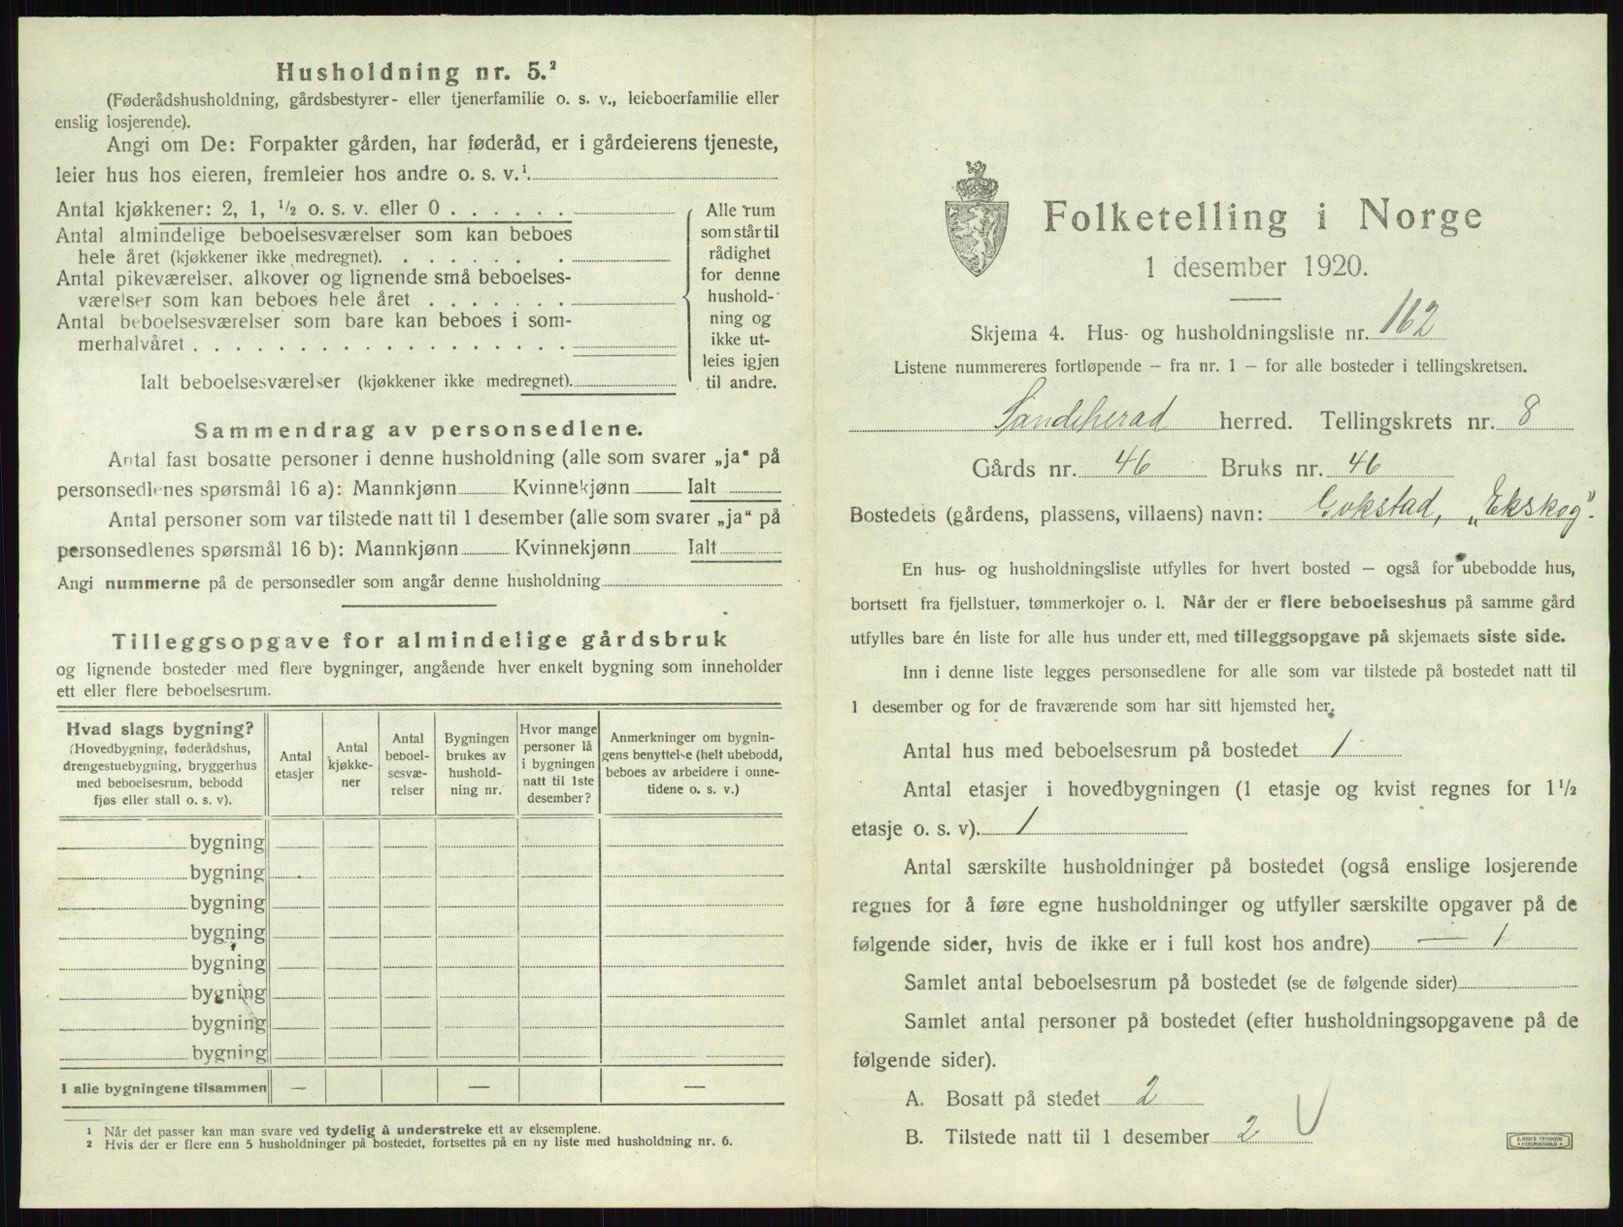 Husholdning nr. 5.²
(Føderådshusholdning, gårdsbestyrer- eller tjenerfamilie o. s. v., leieboerfamilie eller
enslig losjerende).
Angi om De: Forpakter gården, har føderåd, er i gårdeierens tjeneste,
leier hus hos eieren, fremleier hos andre o. s. v.¹
Antal kjøkkener: 2, 1, ½ o. s. v. eller 0
Antal almindelige beboelsesværelser som kan beboes
hele året (kjøkkener ikke medregnet).
Antal pikeværelser, alkover og lignende små beboelses-
værelser som kan beboes hele året
Antal beboelsesværelser som bare kan beboes i som-
merhalvåret
Ialt beboelsesværelser (kjøkkener ikke medregnet).
Alle rum
som står til
rådighet
for denne
hushold-
ning og
ikke ut-
leies igjen
til andre.
Sammendrag av personsedlene.
Antal fast bosatte personer i denne husholdning (alle som svarer „ja“ på
personsedlenes spørsmål 16 a): Mannkjønn Kvinnekjønn Ialt
Antal personer som var tilstede natt til 1 desember (alle som svarer „ja“ på
personsedlenes spørsmål 16 b): Mannkjønn Kvinnekjønn Ialt
Angi nummerne på de personsedler som angår denne husholdning
Tilleggsopgave for almindelige gårdsbruk
og lignende bosteder med flere bygninger, angående hver enkelt bygning som inneholder
ett eller flere beboelsesrum.
Hvad slags bygning?
(Hovedbygning, føderådshus,
drengestuebygning, bryggerhus
med beboelsesrum, bebodd
fjøs eller stall o. s. v).
Antal
etasjer
Antal
kjøkke-
ner
Antal
beboel-
sesvæ-
relser
Bygningen
brukes av
hushold-
ning nr.
Hvor mange
personer lå
i bygningen
natt til 1ste
desember?
Anmerkninger om bygnin-
gens benyttelse (helt ubebodd,
beboes av arbeidere i onne-
tidene o. s. v.)
bygning
bygning
bygning
bygning
bygning
bygning
bygning
bygning
I alle bygningene tilsammen — — —
1 Når det passer kan man svare ved tydelig å understreke ett av eksemplene.
2 Hvis der er flere enn 5 husholdninger på bostedet, fortsettes på en ny liste med husholdning nr. 6.
Folketelling i Norge
1 desember 1920.
Skjema 4. Hus- og husholdningsliste nr. 162
Listene nummereres fortløpende – fra nr. 1 – for alle bosteder i tellingskretsen.
Sandeherad herred. Tellingskrets nr. 8
Gårds nr. 46 Bruks nr. 46
Bostedets (gårdens, plassens, villaens) navn: Gokstad, „Ekskog“.
En hus- og husholdningsliste utfylles for hvert bosted – også for ubebodde hus,
bortsett fra fjellstuer, tømmerkojer o. l. Når der er flere beboelseshus på samme gård
utfylles bare én liste for alle hus under ett, med tilleggsopgave på skjemaets siste side.
Inn i denne liste legges personsedlene for alle som var tilstede på bostedet natt til
1 desember og for de fraværende som har sitt hjemsted her.
Antal hus med beboelsesrum på bostedet 1
Antal etasjer i hovedbygningen (1 etasje og kvist regnes for 1½
etasje o. s. v). 1
Antal særskilte husholdninger på bostedet (også enslige losjerende
regnes for å føre egne husholdninger og utfyller særskilte opgaver på de
følgende sider, hvis de ikke er i full kost hos andre) — 1
Samlet antal beboelsesrum på bostedet (se de følgende sider)
Samlet antal personer på bostedet (efter husholdningsopgavene på de
følgende sider).
A. Bosatt på stedet 2
B. Tilstede natt til 1 desember 2